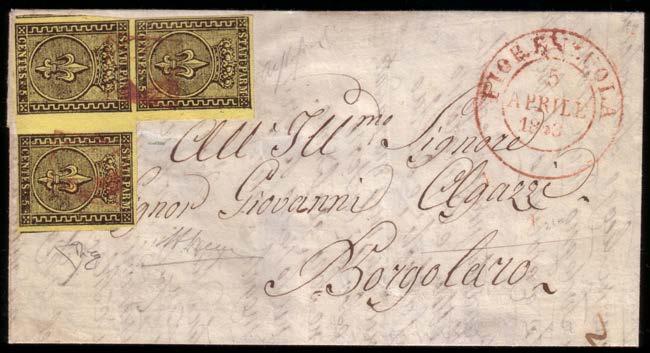 STATI PARM.
CENTES. 5
STATI PARM.
CENTES. 5
STATI PARM.
CENTES. 5
FIORENZUOLA
5
APRILE
1853
All' Ill.mo Signore
Signor Giovanni Agazzi
Borgotaro